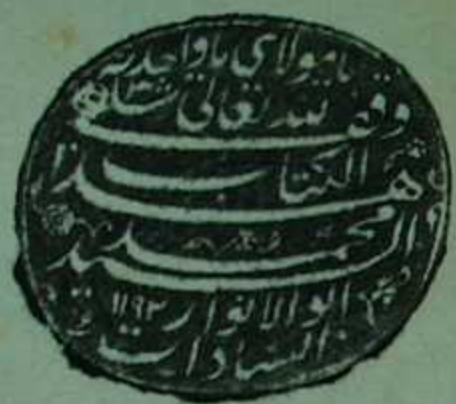 يا مولاي يا واحد
وقف لله تعالى
هذا الكتاب
السيد محمد
ابو الانوار ١١٩٢
السادات